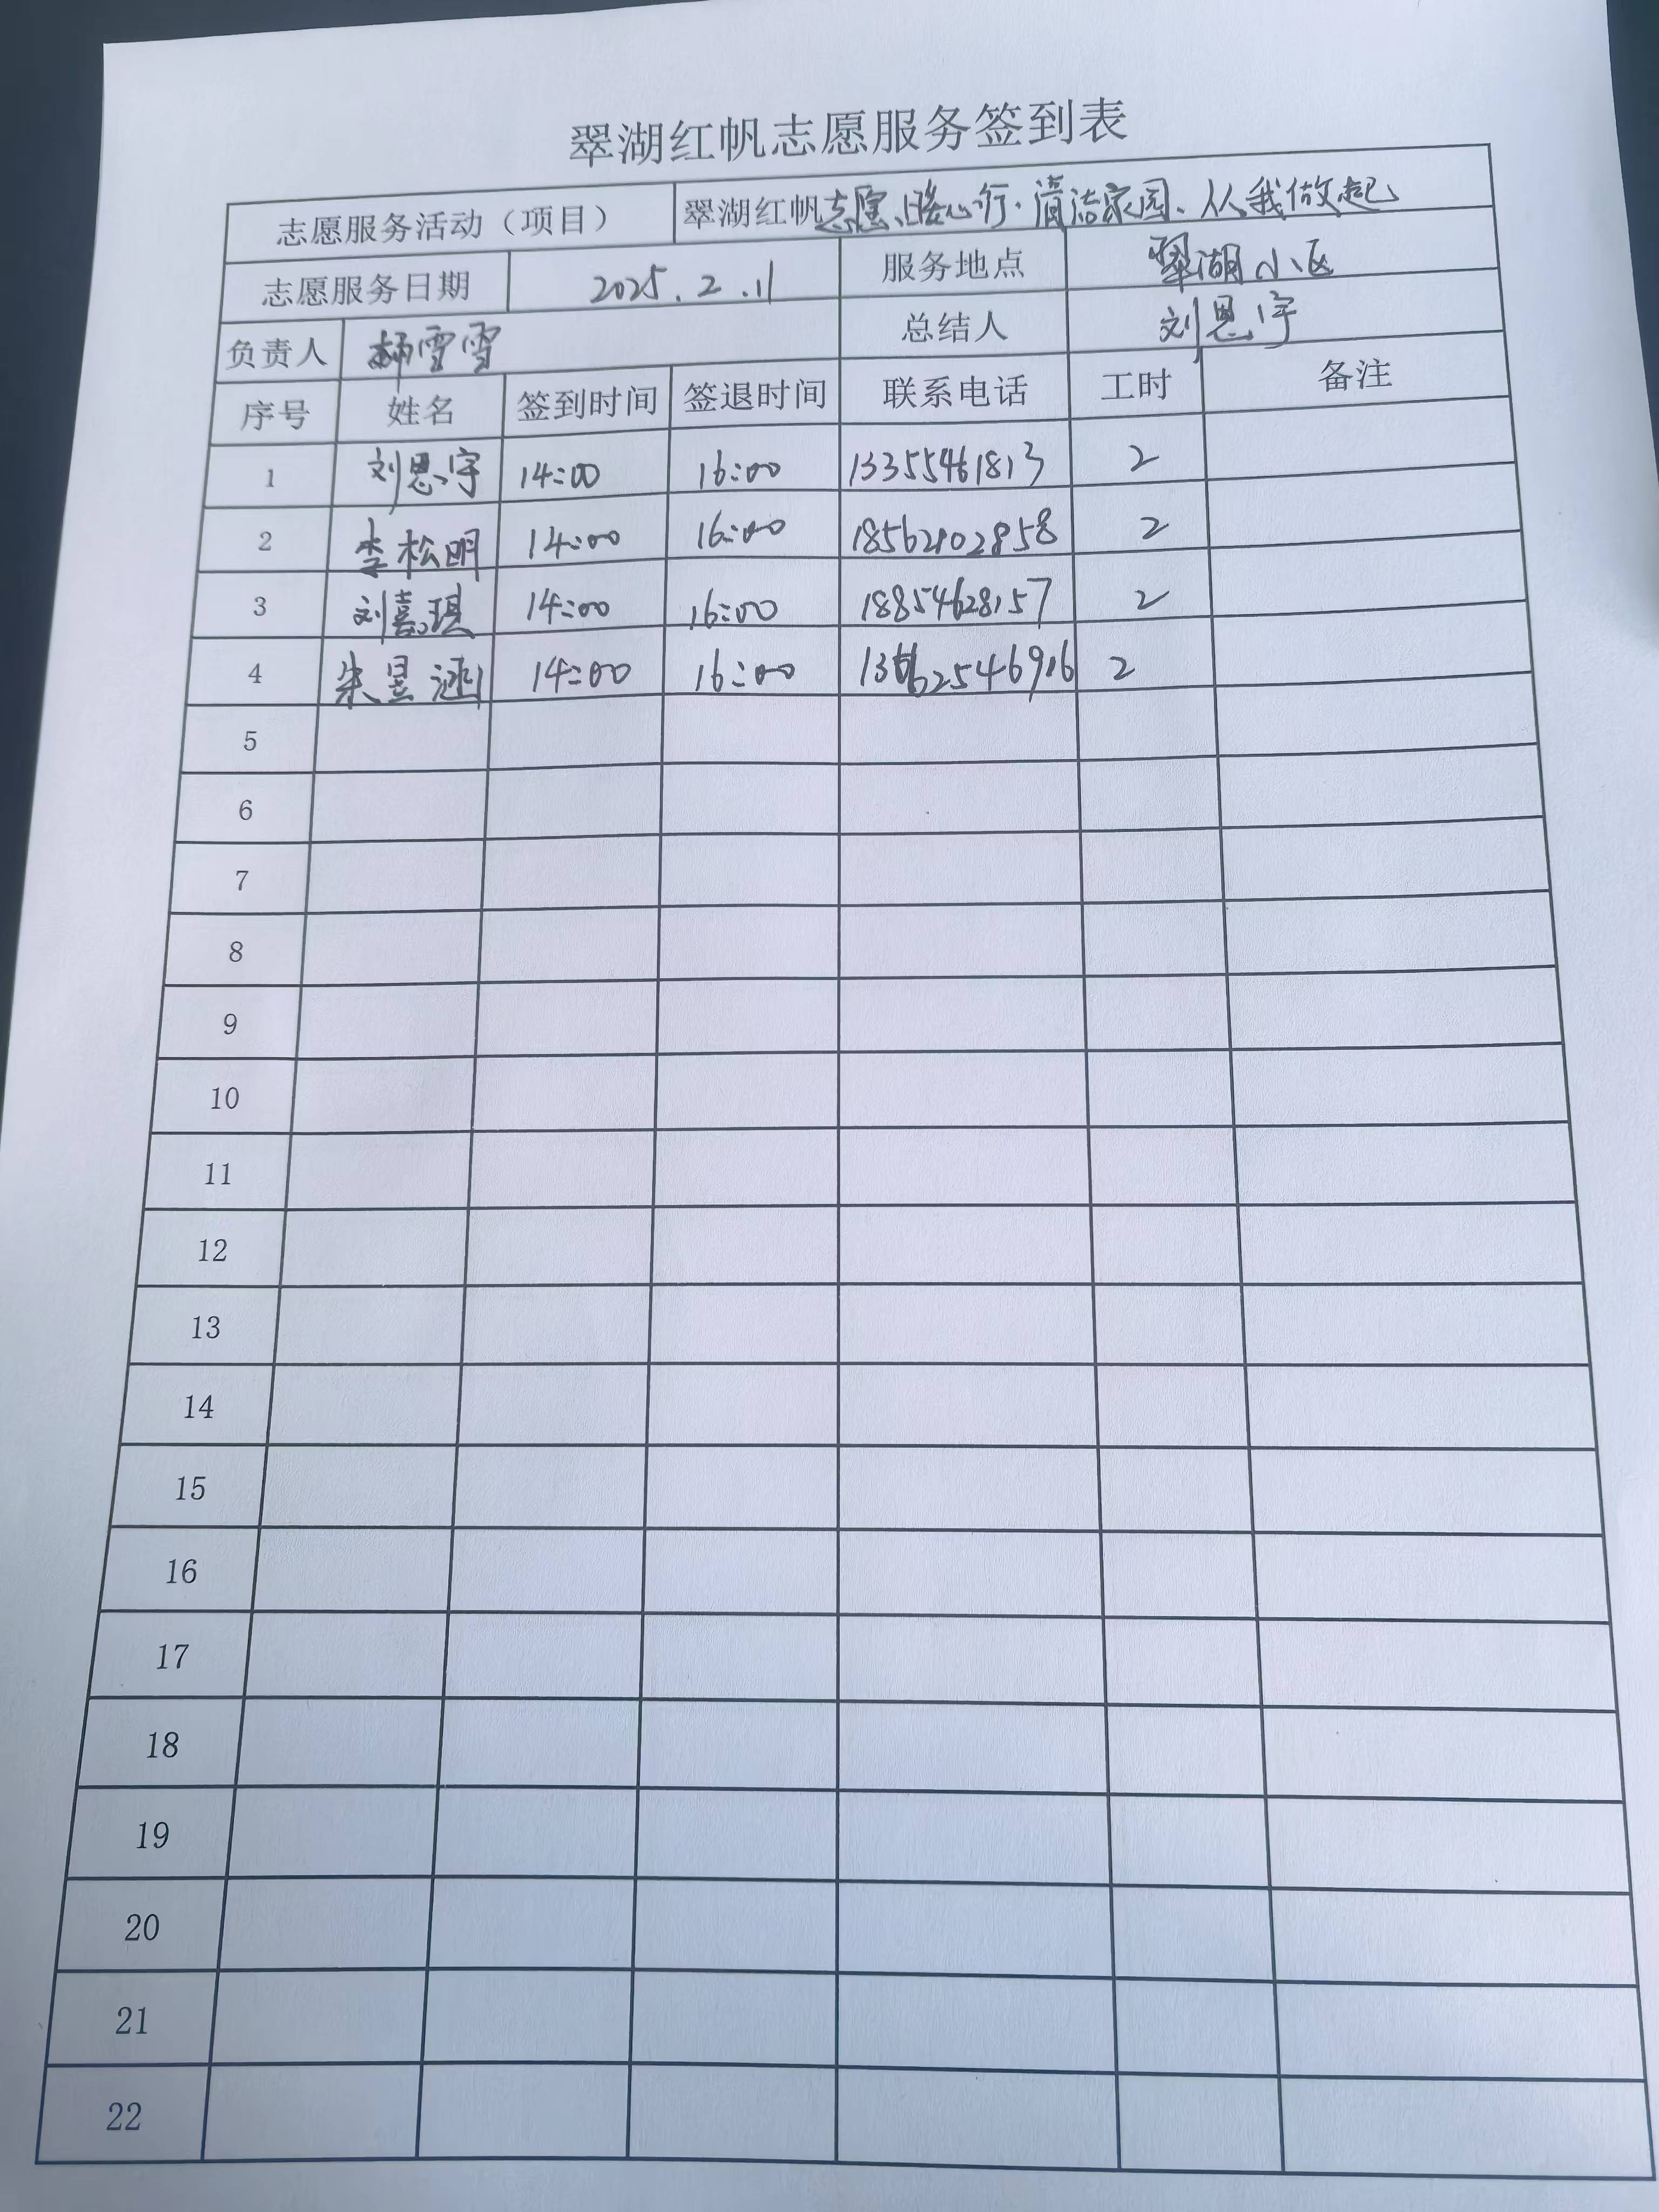 翠湖红帆志愿服务签到表
志愿服务活动（项目） 翠湖红帆志愿、暖心行·清洁家园、从我做起
志愿服务日期 2025.2.11 服务地点 翠湖小区
负责人 雪雪 总结人 刘思宇
序号 姓名 签到时间 签退时间 联系电话 工时 备注
1 刘思宇 14:00 16:00 13355461813 2
2 李松明 14:00 16:00 18562102858 2
3 刘嘉琪 14:00 16:00 18854628157 2
4 朱昱涵 14:00 16:00 2
5
6
7
8
9
10
11
12
13
14
15
16
17
18
19
20
21
22